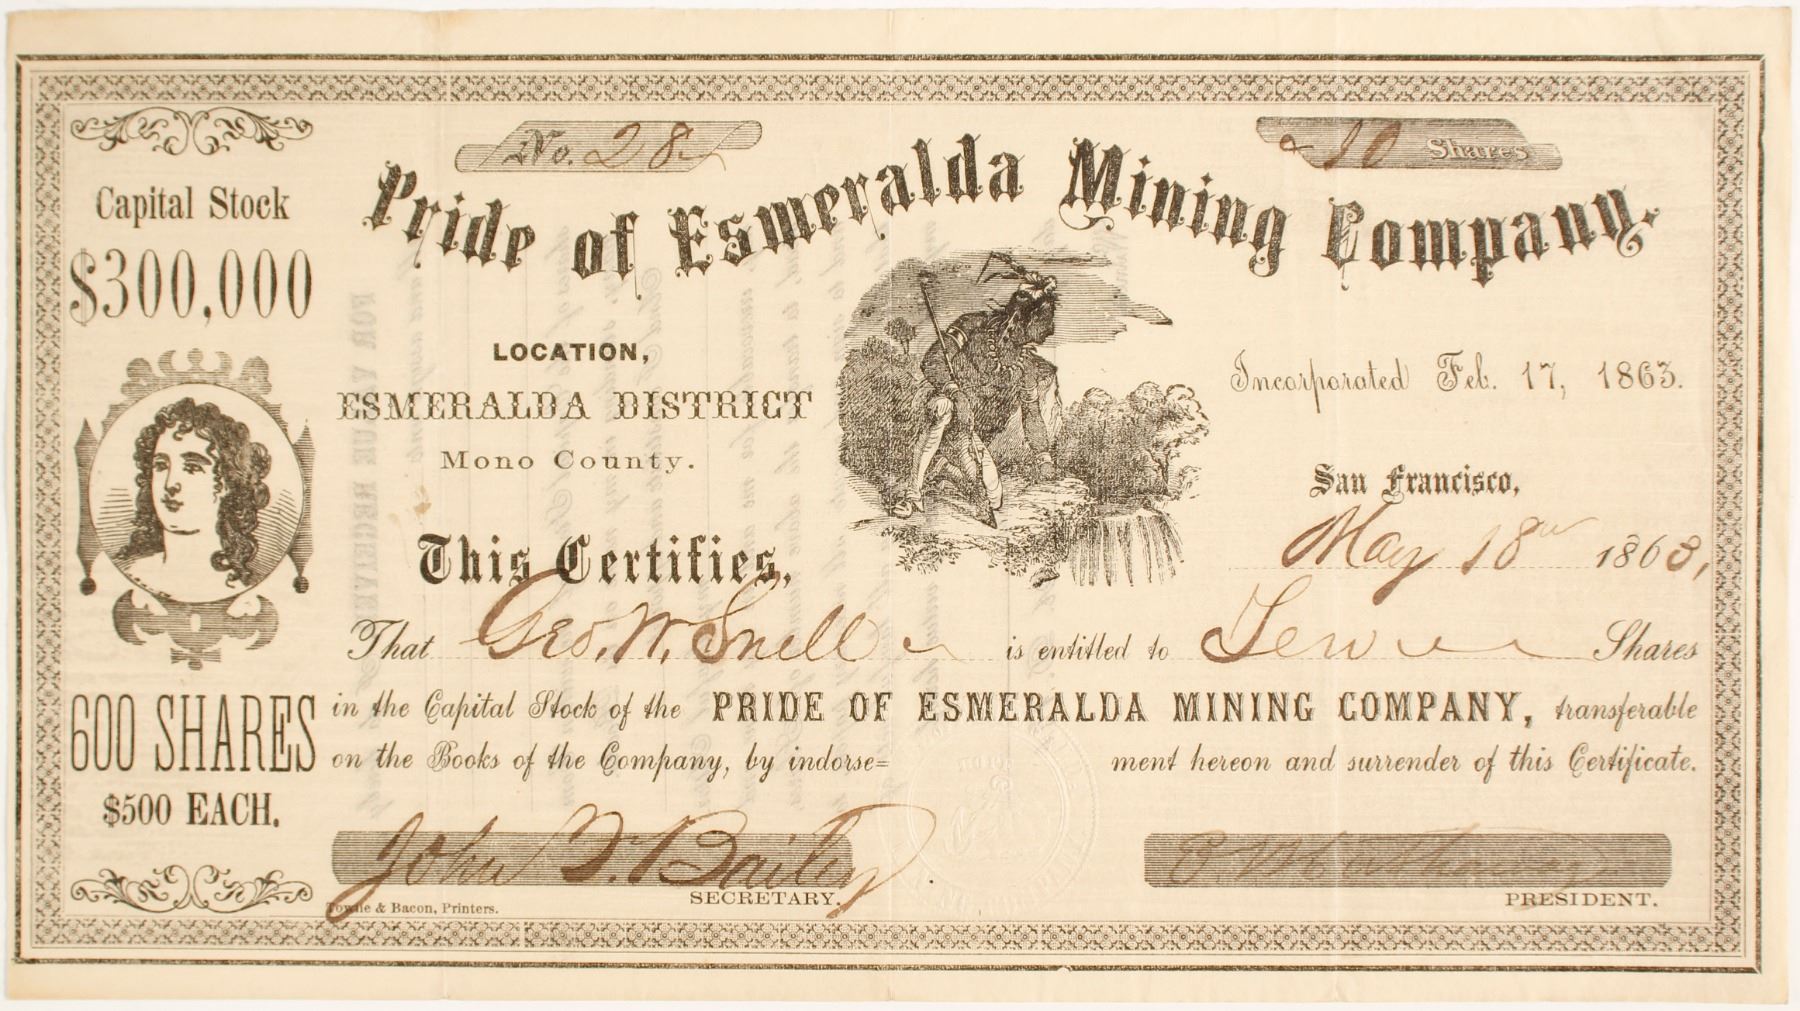 No. 28
10 Shares
Pride of Esmeralda Mining Company.
Capital Stock
$300,000
LOCATION,
ESMERALDA DISTRICT
Mono County.
Incorporated Feb. 17, 1863.
San Francisco,
May 18th 1863,
This Certifies,
That Geo. W. Snell is entitled to Ten Shares
in the Capital Stock of the PRIDE OF ESMERALDA MINING COMPANY, transferable
on the Books of the Company, by indorse=ment hereon and surrender of this Certificate.
600 SHARES
$500 EACH.
John Bailey
SECRETARY.
PRESIDENT.
Towne & Bacon, Printers.